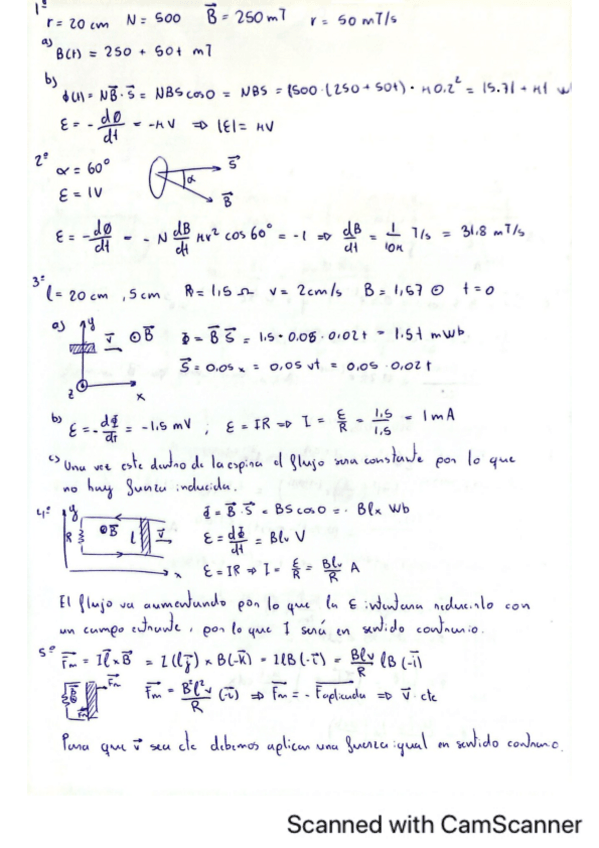 1º
r = 20 cm N = 500 B⃗ = 250 mT r = 50 mT/s
a) B(t) = 250 + 50t mT
b) ϕ(t) = NB⃗·S⃗ = NBS cos0 = NBS = (500·(250+50t)·π0.2² = 15.71 + πt W
ε = -dØ/dt = -πV ⇒ |ε| = πV
2º
α = 60° S⃗
ε = 1V α B⃗
ε = -dØ/dt = -N dB/dt πr² cos 60° = -1 ⇒ dB/dt = 1/10π T/s = 31.8 mT/s
3º
l = 20 cm, 5 cm R = 1,5 Ω v = 2cm/s B = 1,5T ⊙ t = 0
a) y v⃗ ⊙B⃗ Φ = B⃗ S⃗ = 1.5·0.05·0.02t = 1.5t mWb
z x S⃗ = 0.05x = 0,05 vt = 0.05·0,02t
b) ε = -dΦ/dt = -1,5 mV ; ε = IR ⇒ I = ε/R = 1,5/1,5 = 1mA
c) Una vez este dentro de la espira el flujo sera constante por lo que
no hay fuerza inducida.
4º y R ⊙B⃗ l v⃗ x Φ = B⃗·S⃗ = BS cos0 = · Blx Wb
ε = dΦ/dt = Blv V
ε = IR ⇒ I = ε/R = Blv/R A
El flujo va aumentando por lo que la ε intentara reducirlo con
un campo entrante, por lo que I será en sentido contrario.
5º F⃗m = I l⃗ x B⃗ = I(l j⃗) x B(-k⃗) = IlB(-i⃗) = Blv/R lB(-i⃗)
F⃗m F⃗m = B²l²v/R (-i⃗) ⇒ F⃗m = -F⃗aplicada ⇒ v⃗ cte
Para que v⃗ sea cte debemos aplicar una fuerza igual en sentido contrario.
Scanned with CamScanner